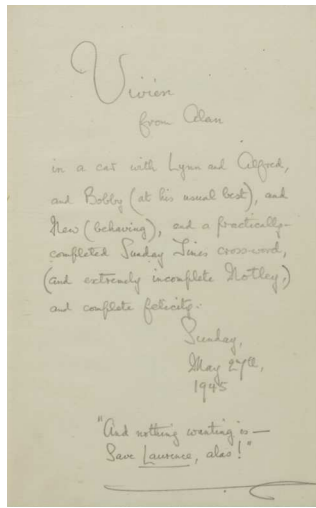 Vivien
from Alan
in a cot with Lynn and Alfred,
and Bobby (at his usual best), and
New (behaving), and a practically-
completed Sunday Times cross-word,
(and extremely incomplete Motley,)
and complete felicity.
Sunday,
May 27th,
1945
"And nothing wanting is—
Save Laurence, alas!"